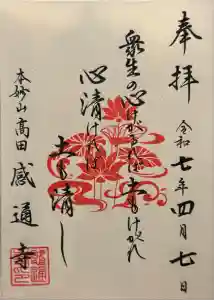 奉拝
令和七年四月七日
衆生の心けがるれば土もけがれ
心清ければ
土も清し
本妙山高田
感通寺